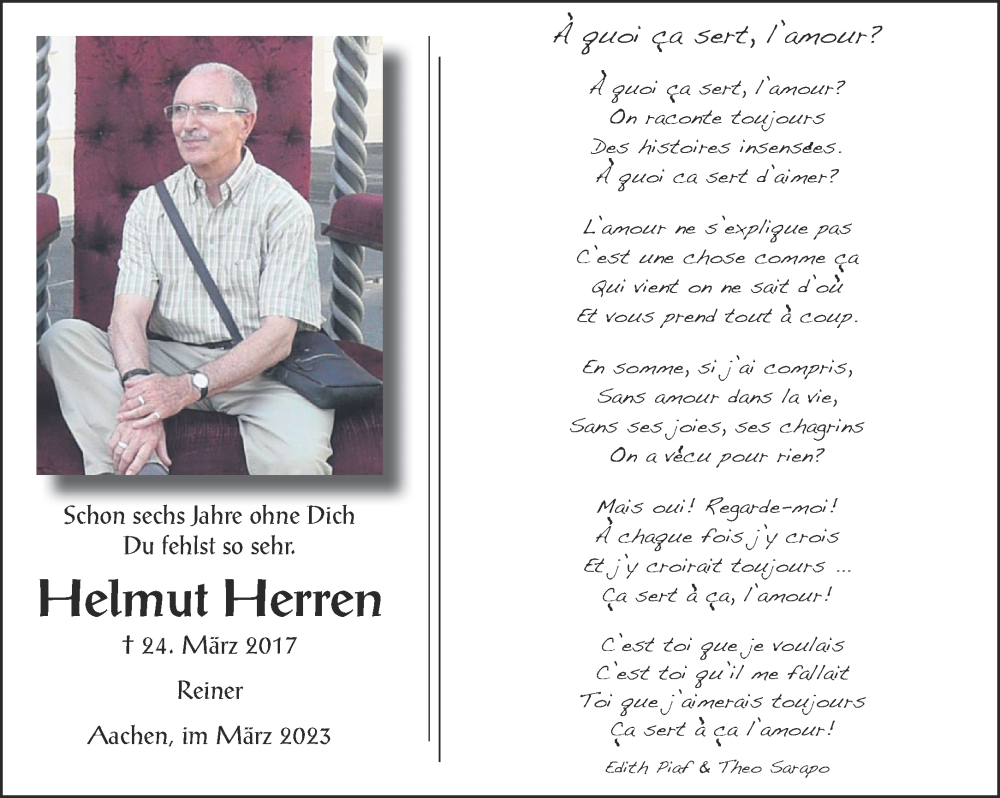 Schon sechs Jahre ohne Dich
Du fehlst so sehr.
Helmut Herren
† 24. März 2017
Reiner
Aachen, im März 2023
À quoi ça sert, l'amour?
À quoi ça sert, l'amour?
On raconte toujours
Des histoires insensées.
À quoi ca sert d'aimer?
L'amour ne s'explique pas
C'est une chose comme ça
Qui vient on ne sait d'où
Et vous prend tout à coup.
En somme, si j'ai compris,
Sans amour dans la vie,
Sans ses joies, ses chagrins
On a vécu pour rien?
Mais oui! Regarde-moi!
À chaque fois j'y crois
Et j'y croirait toujours ...
Ça sert à ça, l'amour!
C'est toi que je voulais
C'est toi qu'il me fallait
Toi que j'aimerais toujours
Ça sert à ça l'amour!
Edith Piaf & Theo Sarapo